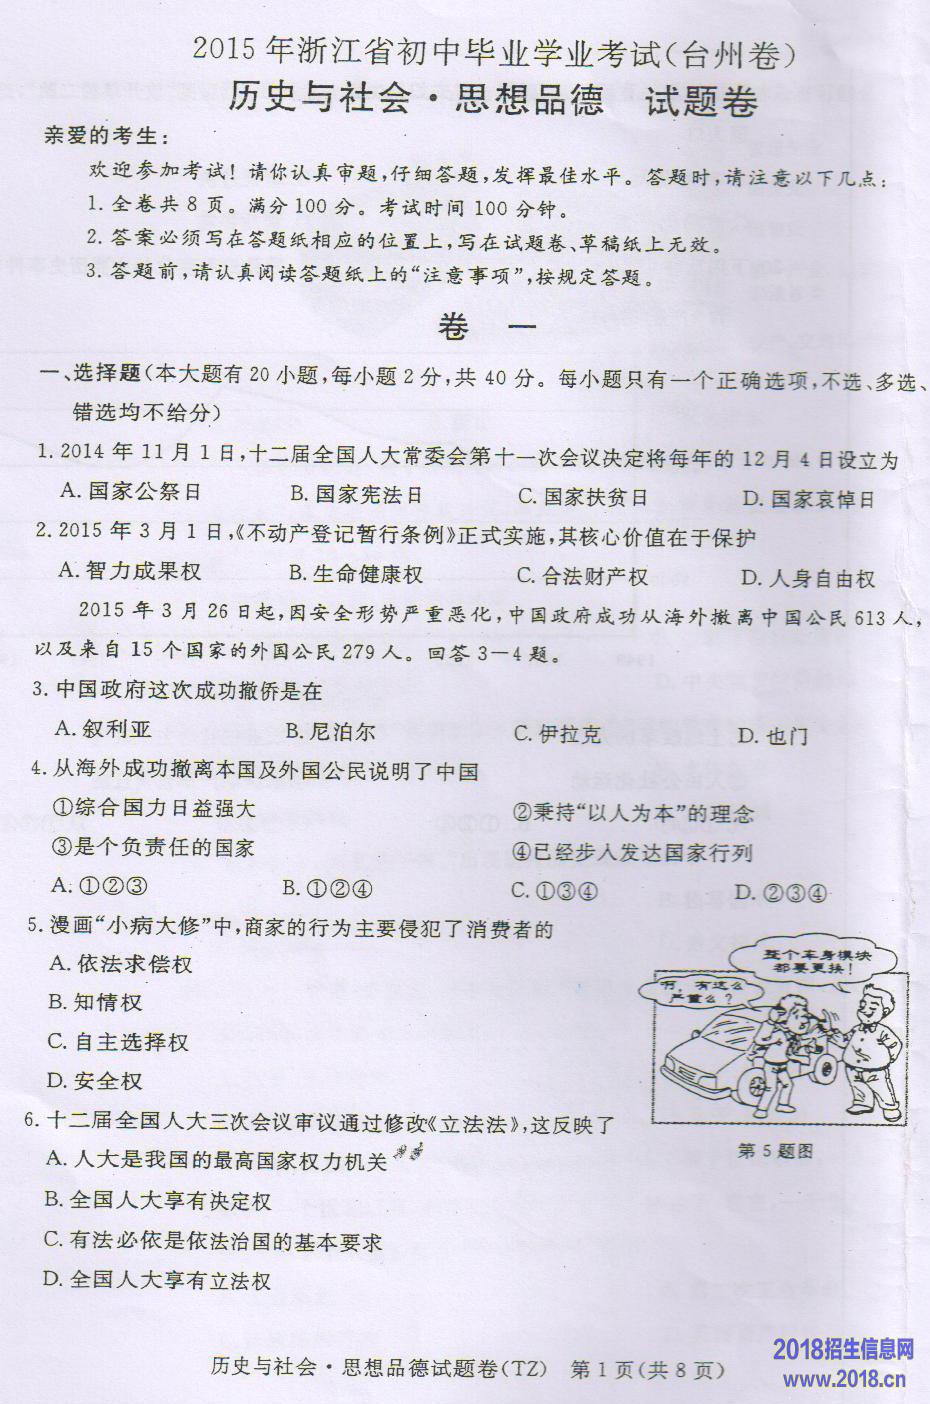 2015年浙江省初中毕业学业考试(台州卷)
历史与社会·思想品德 试题卷
亲爱的考生:
欢迎参加考试!请你认真审题,仔细答题,发挥最佳水平。答题时,请注意以下几点:
1.全卷共8页。满分100分。考试时间100分钟。
2.答案必须写在答题纸相应的位置上,写在试题卷、草稿纸上无效。
3.答题前,请认真阅读答题纸上的“注意事项”,按规定答题。
卷 一
一、选择题(本大题有20小题,每小题2分,共40分。每小题只有一个正确选项,不选、多选、
错选均不给分)
1.2014年11月1日,十二届全国人大常委会第十一次会议决定将每年的12月4日设立为
A.国家公祭日 B.国家宪法日 C.国家扶贫日 D.国家哀悼日
2.2015年3月1日,《不动产登记暂行条例》正式实施,其核心价值在于保护
A.智力成果权 B.生命健康权 C.合法财产权 D.人身自由权
2015年3月26日起,因安全形势严重恶化,中国政府成功从海外撤离中国公民613人,
以及来自15个国家的外国公民279人。回答3—4题。
3.中国政府这次成功撤侨是在
A.叙利亚 B.尼泊尔 C.伊拉克 D.也门
4.从海外成功撤离本国及外国公民说明了中国
①综合国力日益强大 ②秉持“以人为本”的理念
③是个负责任的国家 ④已经步人发达国家行列
A.①②③ B.①②④ C.①③④ D.②③④
5.漫画“小病大修”中,商家的行为主要侵犯了消费者的
A.依法求偿权
B.知情权
C.自主选择权
D.安全权
整个车身模块
都要更换!
啊,有这么
严重么?
第5题图
6.十二届全国人大三次会议审议通过修改《立法法》,这反映了
A.人大是我国的最高国家权力机关
B.全国人大享有决定权
C.有法必依是依法治国的基本要求
D.全国人大享有立法权
历史与社会·思想品德试题卷(TZ) 第1页(共8页)
2018招生信息网
www.2018.cn